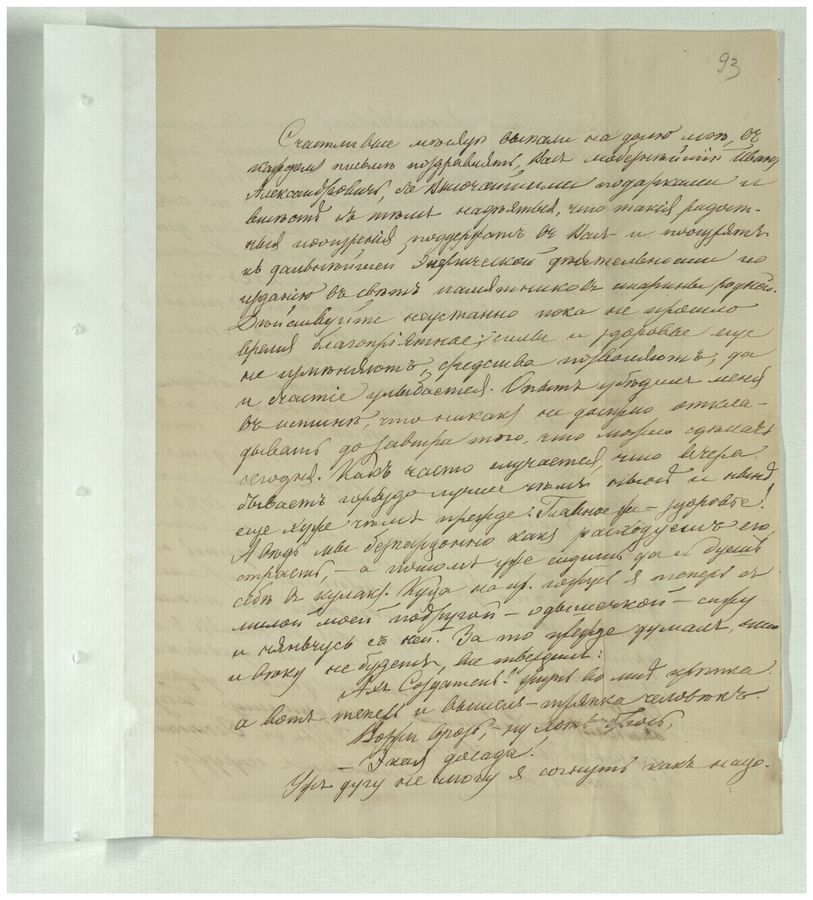 93
Счастливые минуты выпали на долю мою, въ
каждомъ письмѣ поздравлять Васъ любезнѣйшій Иванъ
Александровичъ, съ Высочайшими подарками и
вмѣстѣ съ тѣмъ надѣяться, что такія радост-
ныя поощренія поддержатъ въ Васъ и поощрятъ
къ дальнѣйшей энергической дѣятельности по
изданію въ свѣтъ памятниковъ старины родной.
Дѣйствуйте неустанно пока не прошло
время благопріятное; силы и здоровье еще
не измѣняютъ, средства позволяютъ, да
и счастіе улыбается. Опытъ убѣдилъ меня
въ истинѣ, что никакъ не должно откла-
дывать до завтра того, что можно сдѣлать
сегодня. Какъ часто случается, что вчера
бываетъ гораздо лучше чѣмъ нынѣ
еще хуже чѣмъ прежде: Главное – здоровье!
А вѣдь мы безпардонно какъ расходуемъ его,
– а потомъ уже сидишь да и дуешь
себѣ въ кулакъ. Куда на пр. гожусь я теперь съ
милой моей подругой – одышечкой – сижу
и няньчусь съ ней. За то прежде думалъ, что
и вѣку не будетъ, все твердилъ:
Ахъ Создатель! Грудь во мнѣ крѣпка
а вотъ теперь и вышелъ – тряпка человѣкъ.
Возьми брось, – ну
– Экая досада!
Ужъ дугу не могу я согнуть какъ надо.